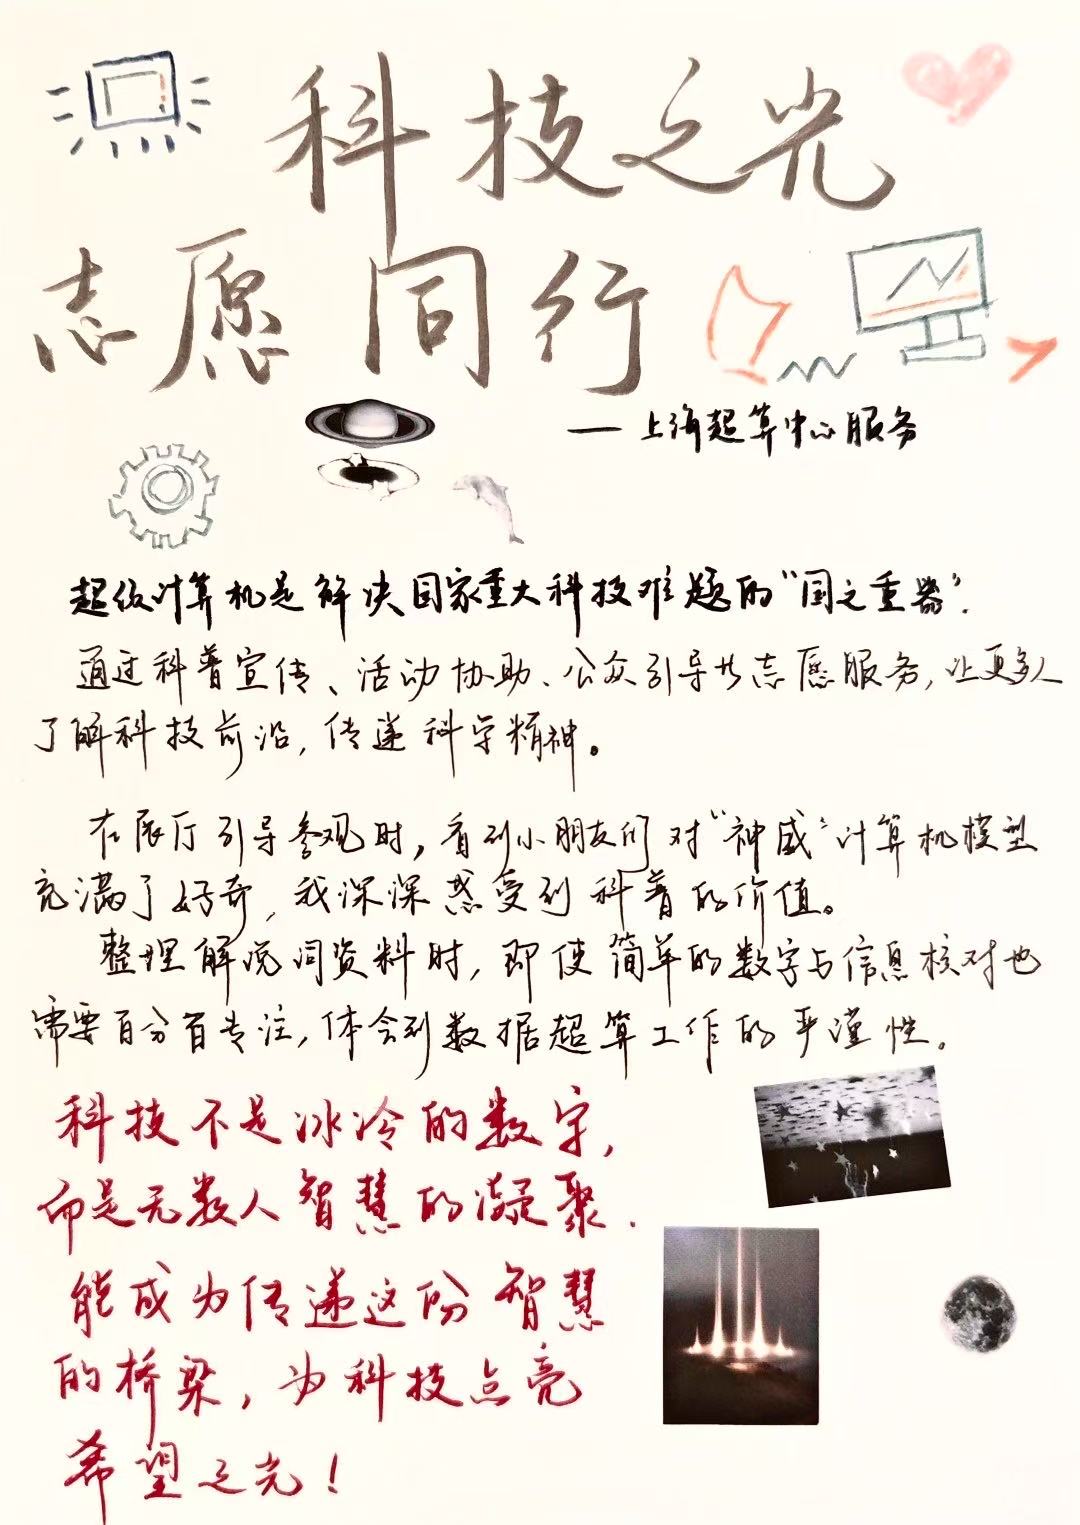 科技之光
志愿同行
—上海超算中心服务
超级计算机是解决国家重大科技难题的“国之重器”.
通过科普宣传、活动协助、公众引导共志愿服务,让更多人
了解科技前沿,传递科学精神。
在展厅引导参观时,看到小朋友们对“神威”计算机模型
充满了好奇,我深深感受到科普的价值。
整理解说词资料时,即使简单的数字与信息核对也
需要百分百专注,体会到数据超算工作的严谨性。
科技不是冰冷的数字,
而是无数人智慧的凝聚.
能成为传递这份智慧
的桥梁,为科技点亮
希望之光!